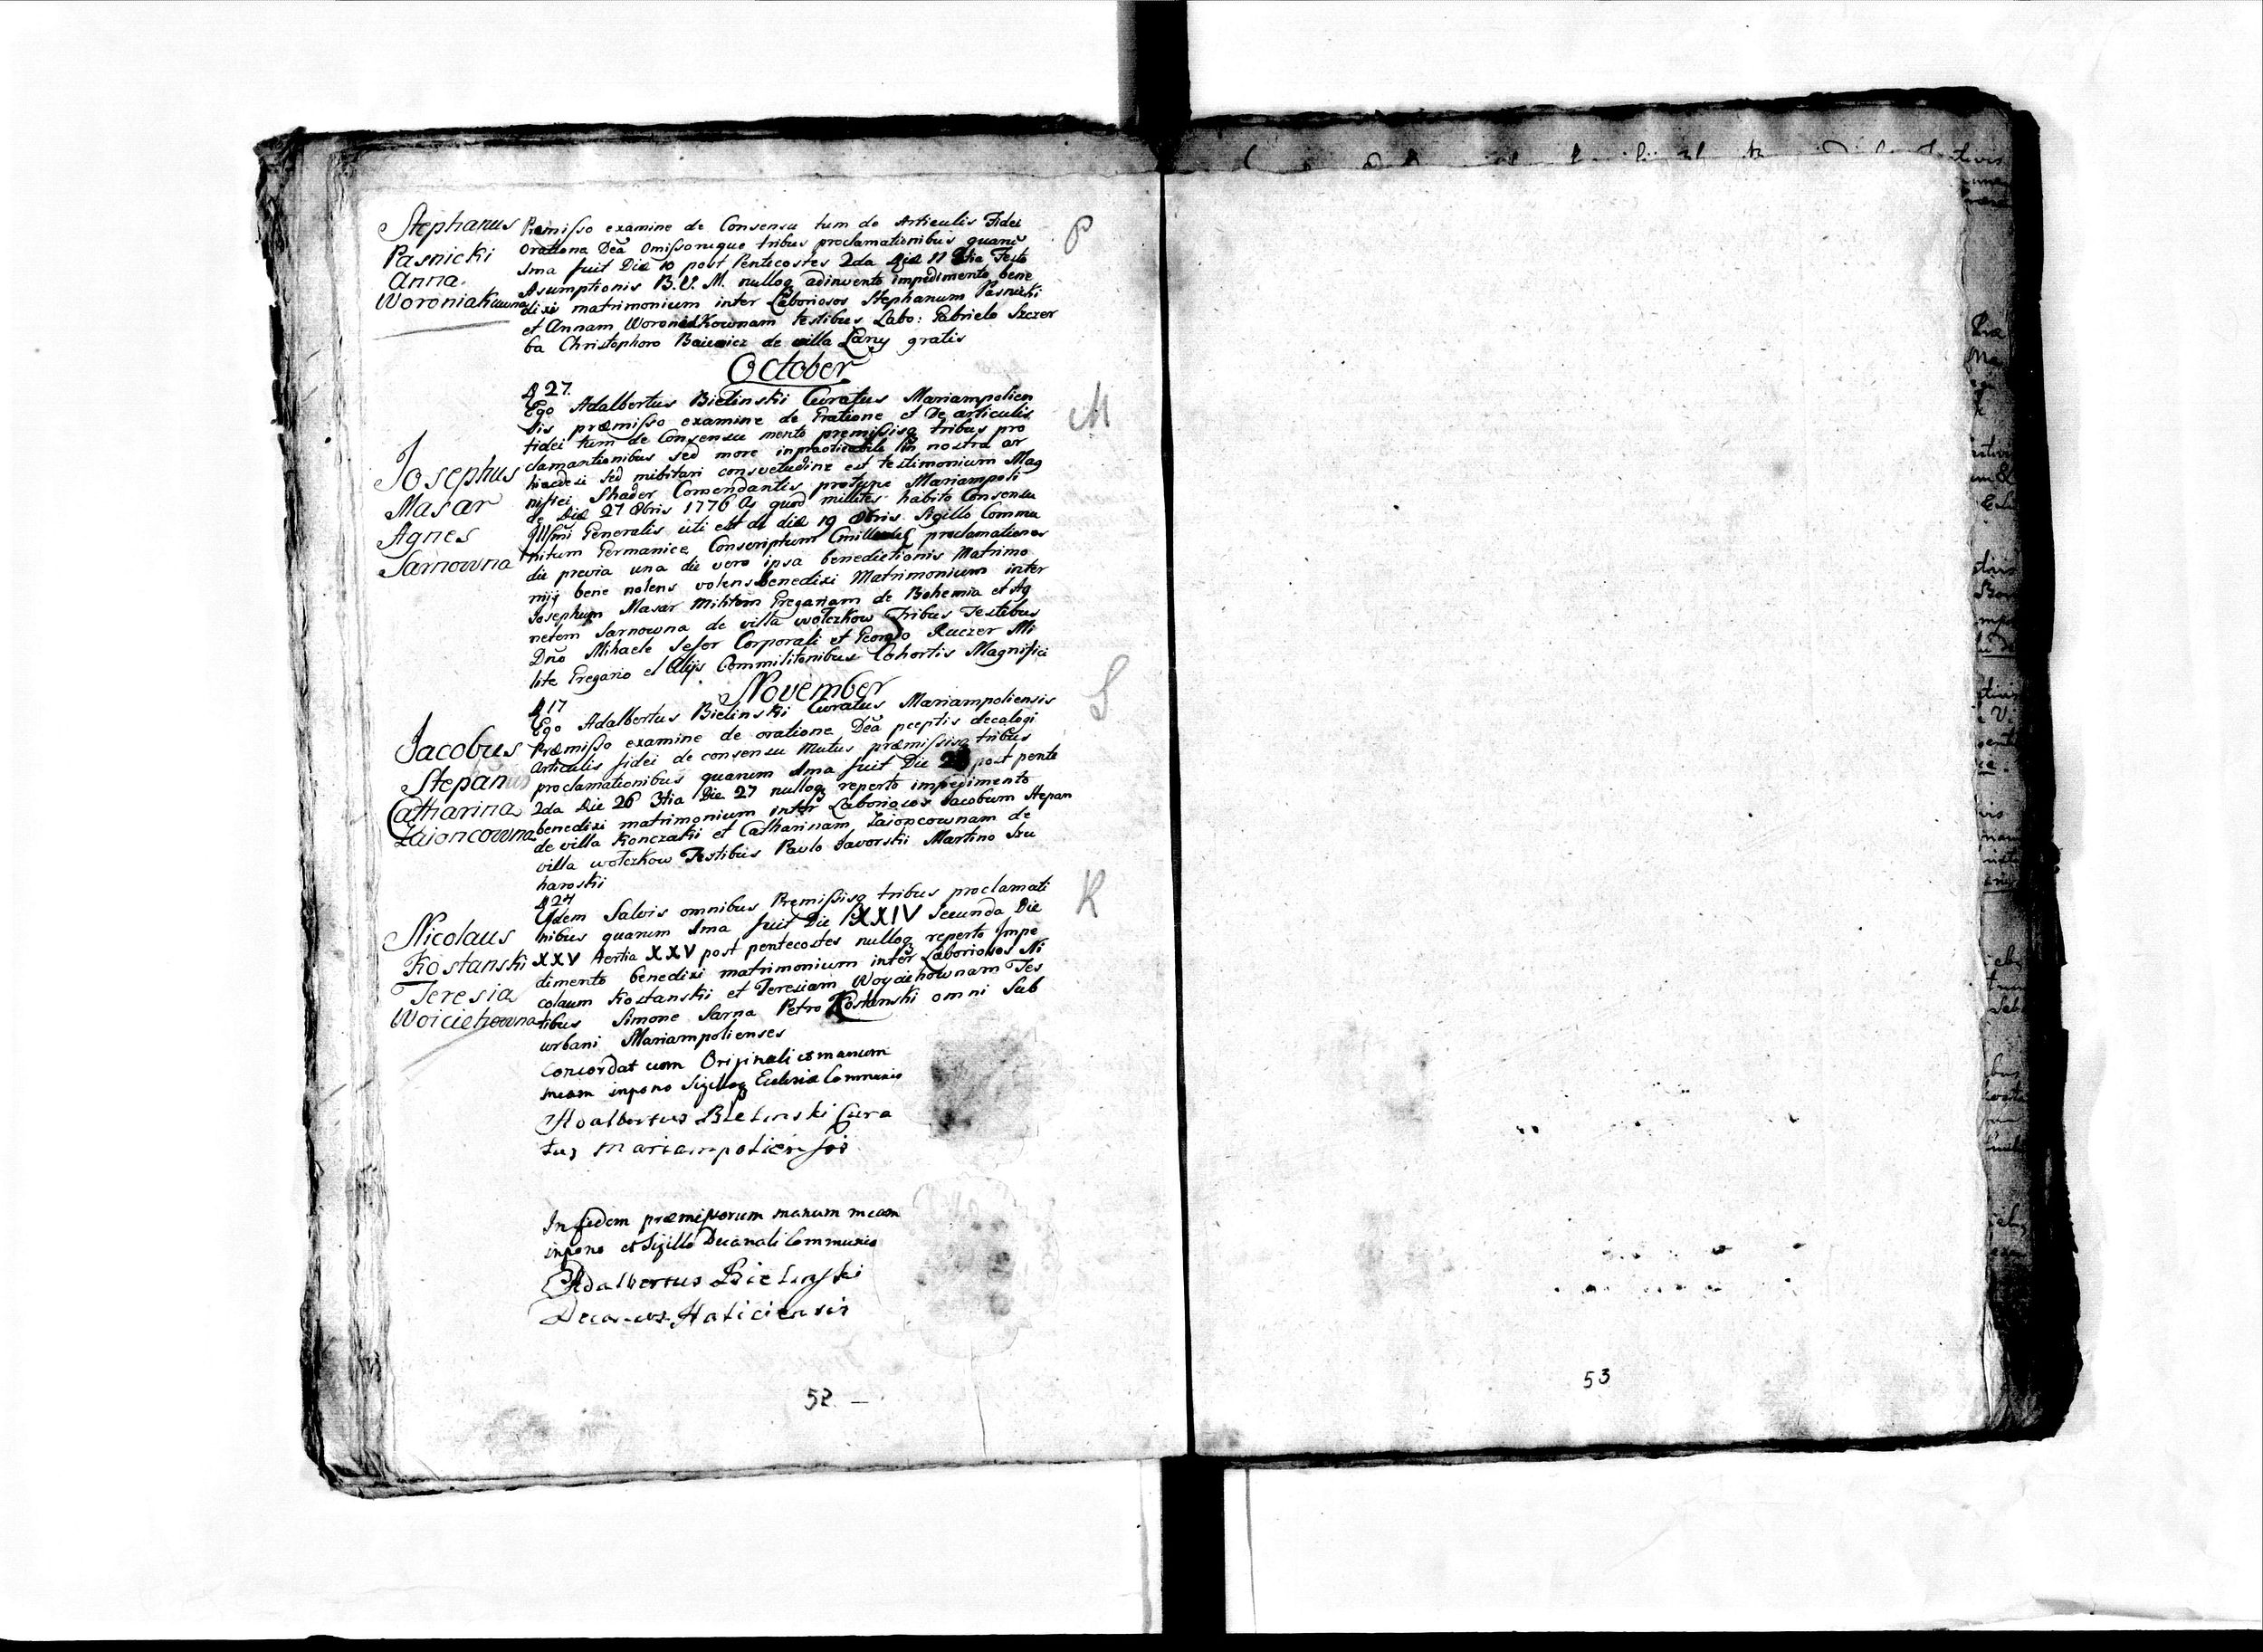 Stephanus
Pasnicki
Anna
Woroniakowna
Præmisso examine de Consensu tum de Articulis Fidei
Oratione Dea Omissoneque tribus proclamationibus quaru
1ma fuit Die 10 post Pentecostes 2da Die 11 3tia Festo
Asumptionis B. V. M. nulloq adinvento impedimento bene
dixi matrimonium inter Laboriosos Stephanum Pasnicki
et Annam Woroniakownam testibus Labo: Gabriele Szczer
ba Christophoro de villa Lany gratis
P
October
D 27.
Ego Adalbertus Bielinski Curatus Mariampolien
sis præmisso examine de Oratione et De articulis
fidei tum de Consensu premissisq tribus pro
clamantionibus sed more inpracticabili in nostra ar
sed militari consvetudine est testimonium Mag
nifici Shader Comendantis protunc Mariampoli
de Die 27 8bris 1776 quod milites habito Consensu
Illsmi Generalis uti est de die 19 8bris Sigillo Commu
nitum Germanice Conscriptum proclamationes
die previa una die vero ipsa benedictionis Matrimo
nij bene nolens volens benedixi Matrimonium inter
Josephum Masar Militem Gregariam de Bohemia et Ag
netem Sarnowna de villa Wolczkow Tribus Testibus
Dno Mihaele Sefer Corporali et Georgio Ruczer Mi
lite Gregario et Alijs Commilitonibus Cohortis Magnifici
Josephus
Masar
Agnes
Sarnowna
M
November
D 17
Ego Adalbertus Bielinski Curatus Mariampoliensis
Præmisso examine de oratione Dea pceptis decalogi
Articulis fidei de consensu Mutus præmissisq tribus
proclamationibus quarum 1ma fuit Die post pente
2da Die 26 3tia Die 27 nulloq reperto impedimento
benedixi matrimonium inter Laboriosos Jacobum Stepan
de villa Konczaki et Catharinam Zaioncownam de
villa wolczkow Testibus Pavlo Javorski Martino Szu
haroski
Jacobus
Stepanus
Catharina
Zaioncowna
S
D 24
Idem Salvis omnibus Premissisq tribus proclamati
nibus quarum 1ma fuit Die XXIV Secunda Die
XXV tertia XXV post pentecostes nulloq reperto Impe
dimento benedixi matrimonium inter Laboriosos Ni
colaum Kostanski et Teresiam Woyciehownam Tes
tibus Simone Sarna Petro Kostanski omni Sub
urbani Mariampolienses
Nicolaus
Kostanski
Teresia
Woiciehowna
K
Concordat cum Originali et manum
meam inpono Sigilloq Eclesiæ Communio
Adalbertus Bielinski Cura
tus Mariampoliensis
In fidem præmissorum manum meam
inpono et Sigillo Decanali Communio
Adalbertus Bielinski
Decanus Haliciensis
52
53